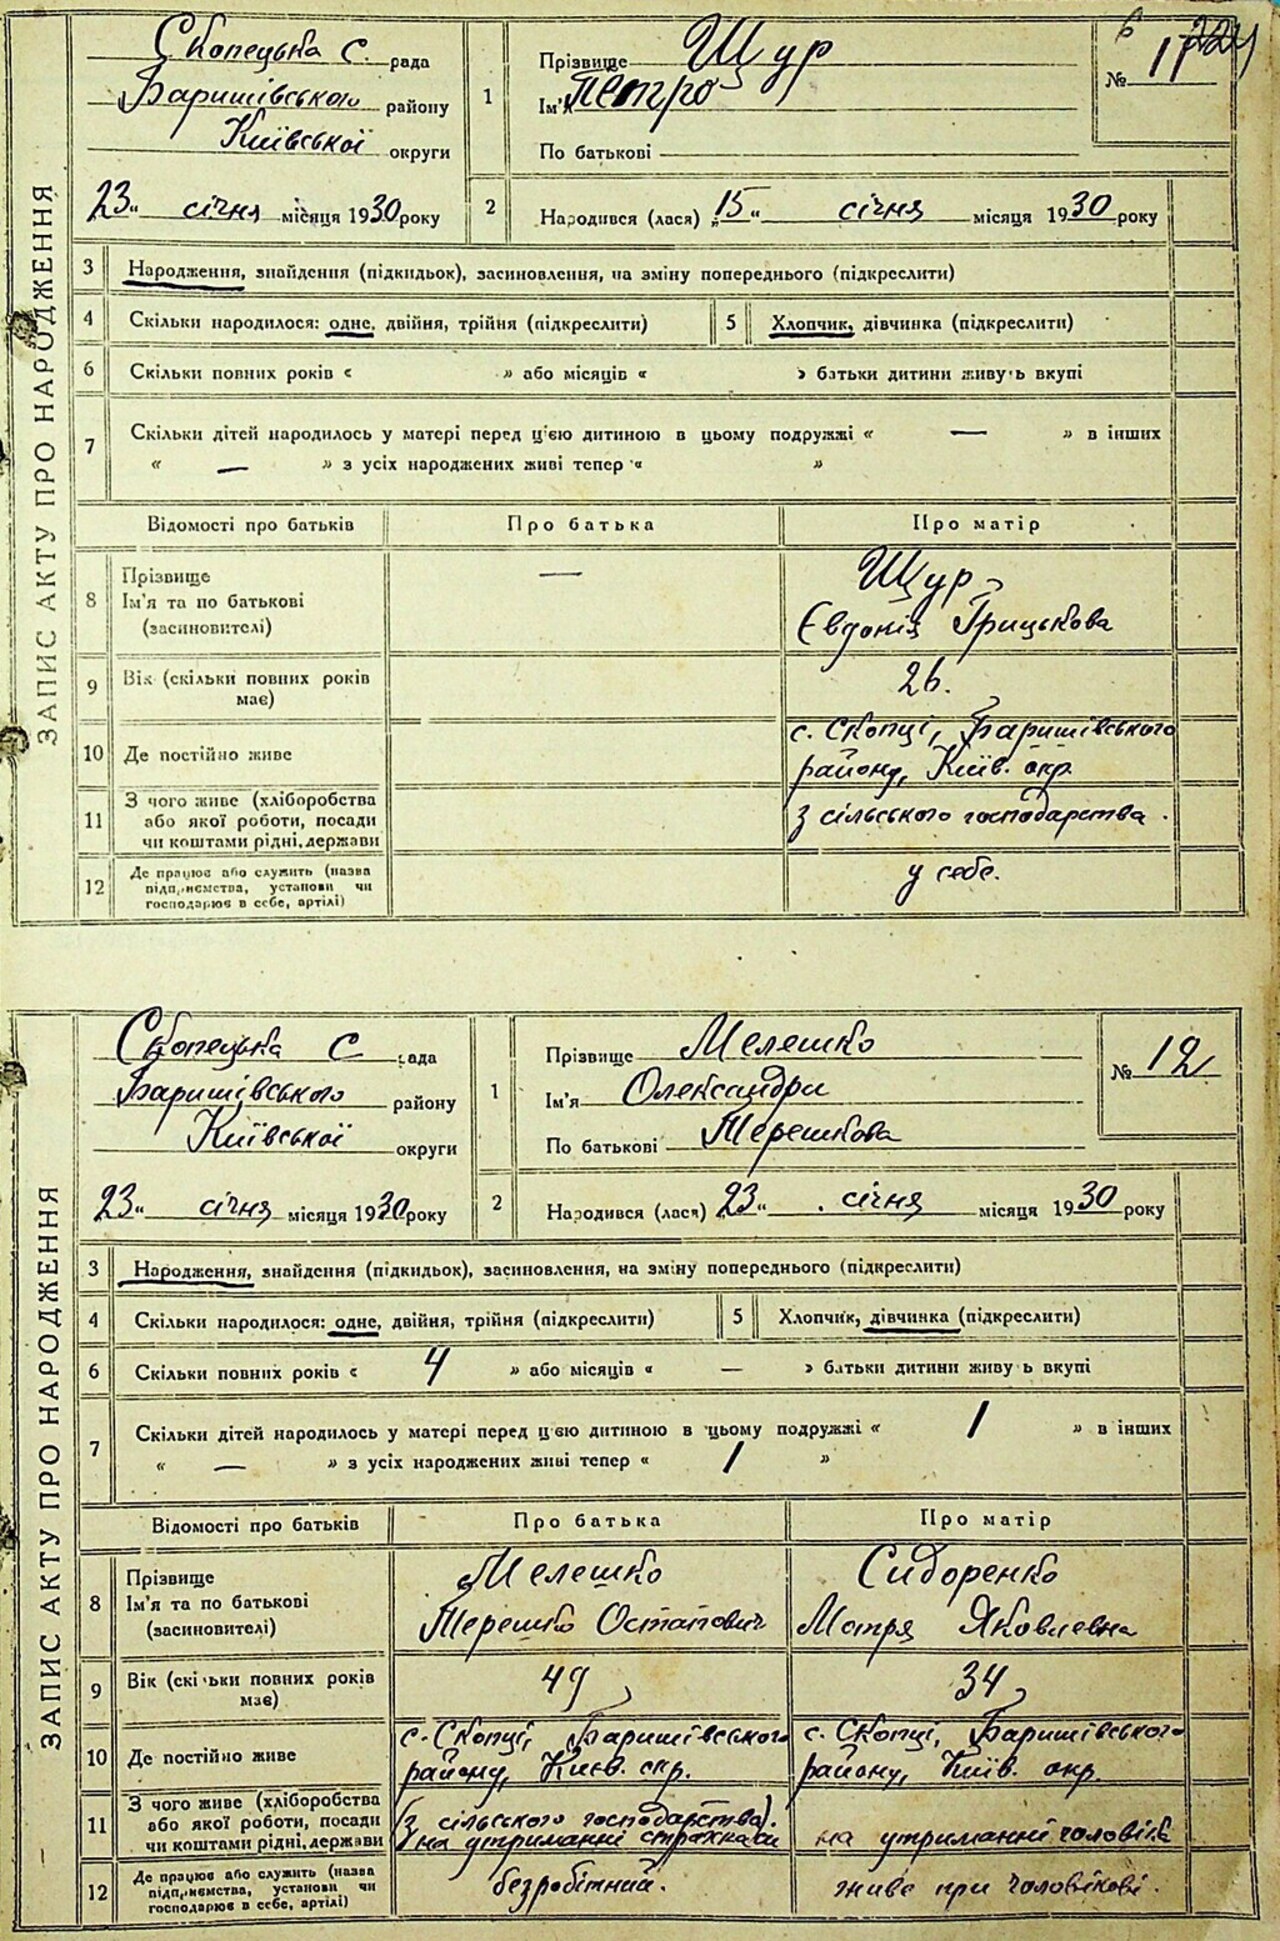 ЗАПИС АКТУ ПРО НАРОДЖЕННЯ
Скопецька с. рада
Баришівського району
Київської округи
23 „ січня місяця 1930 року
1
Прізвище Щур
Ім'я Петро
По батькові
№ 11
224
2
Народився (лася) „ 15 " січня місяця 1930 року
3 Народження, знайдення (підкидьок), засиновлення, на зміну попереднього (підкреслити)
4 Скільки народилося: одне, двійня, трійня (підкреслити) 5 Хлопчик, дівчинка (підкреслити)
6 Скільки повних років « » або місяців « » батьки дитини живуть вкупі
7 Скільки дітей народилось у матері перед цією дитиною в цьому подружжі « — » в інших
« — » з усіх народжених живі тепер « »
Відомості про батьків Про батька Про матір
8 Прізвище Ім'я та по батькові (засиновителі) — Щур Євдокія Грицькова
9 Вік (скільки повних років має) 26.
10 Де постійно живе с. Скопці, Баришівського району, Київ. окр.
11 З чого живе (хліборобства або якої роботи, посади чи коштами рідні, держави з сільського господарства.
12 Де працює або служить (назва підприємства, установи чи господарює в себе, артілі) у себе.
ЗАПИС АКТУ ПРО НАРОДЖЕННЯ
Скопецька с рада
Баришівського району
Київської округи
23 „ січня місяця 1930 року
1
Прізвище Мелешко
Ім'я Олександри
По батькові Терешкова
№ 12
2
Народився (лася) 23 " січня місяця 1930 року
3 Народження, знайдення (підкидьок), засиновлення, на зміну попереднього (підкреслити)
4 Скільки народилося: одне, двійня, трійня (підкреслити) 5 Хлопчик, дівчинка (підкреслити)
6 Скільки повних років « 4 » або місяців « — » батьки дитини живуть вкупі
7 Скільки дітей народилось у матері перед цією дитиною в цьому подружжі « 1 » в інших
« — » з усіх народжених живі тепер « 1 »
Відомості про батьків Про батька Про матір
8 Прізвище Ім'я та по батькові (засиновителі) Мелешко Терешко Остапович Сидоренко Мотря Яковлевна
9 Вік (скільки повних років має) 49 34
10 Де постійно живе с. Скопці, Баришівського району, Києв. окр. с. Скопці, Баришівського району, Київ. окр.
11 З чого живе (хліборобства або якої роботи, посади чи коштами рідні, держави (з сільського господарства). на утриманні страхкаси на утриманні чоловіка
12 Де працює або служить (назва підприємства, установи чи господарює в себе, артілі) безробітний. живе при чоловікові.